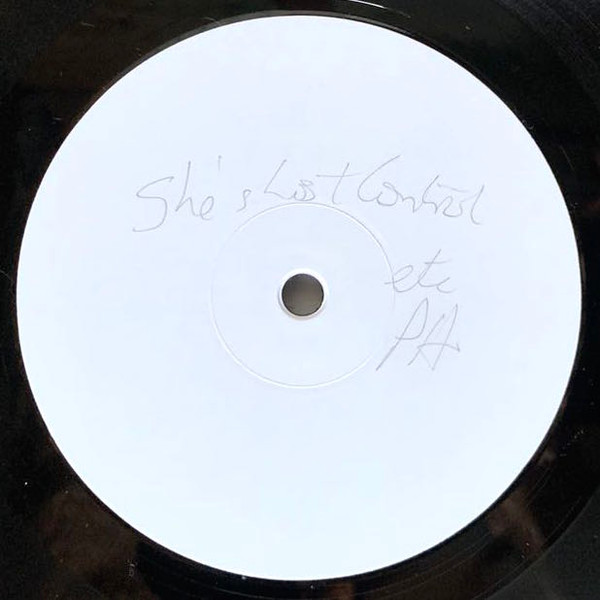 She's Lost Control
etc
PH